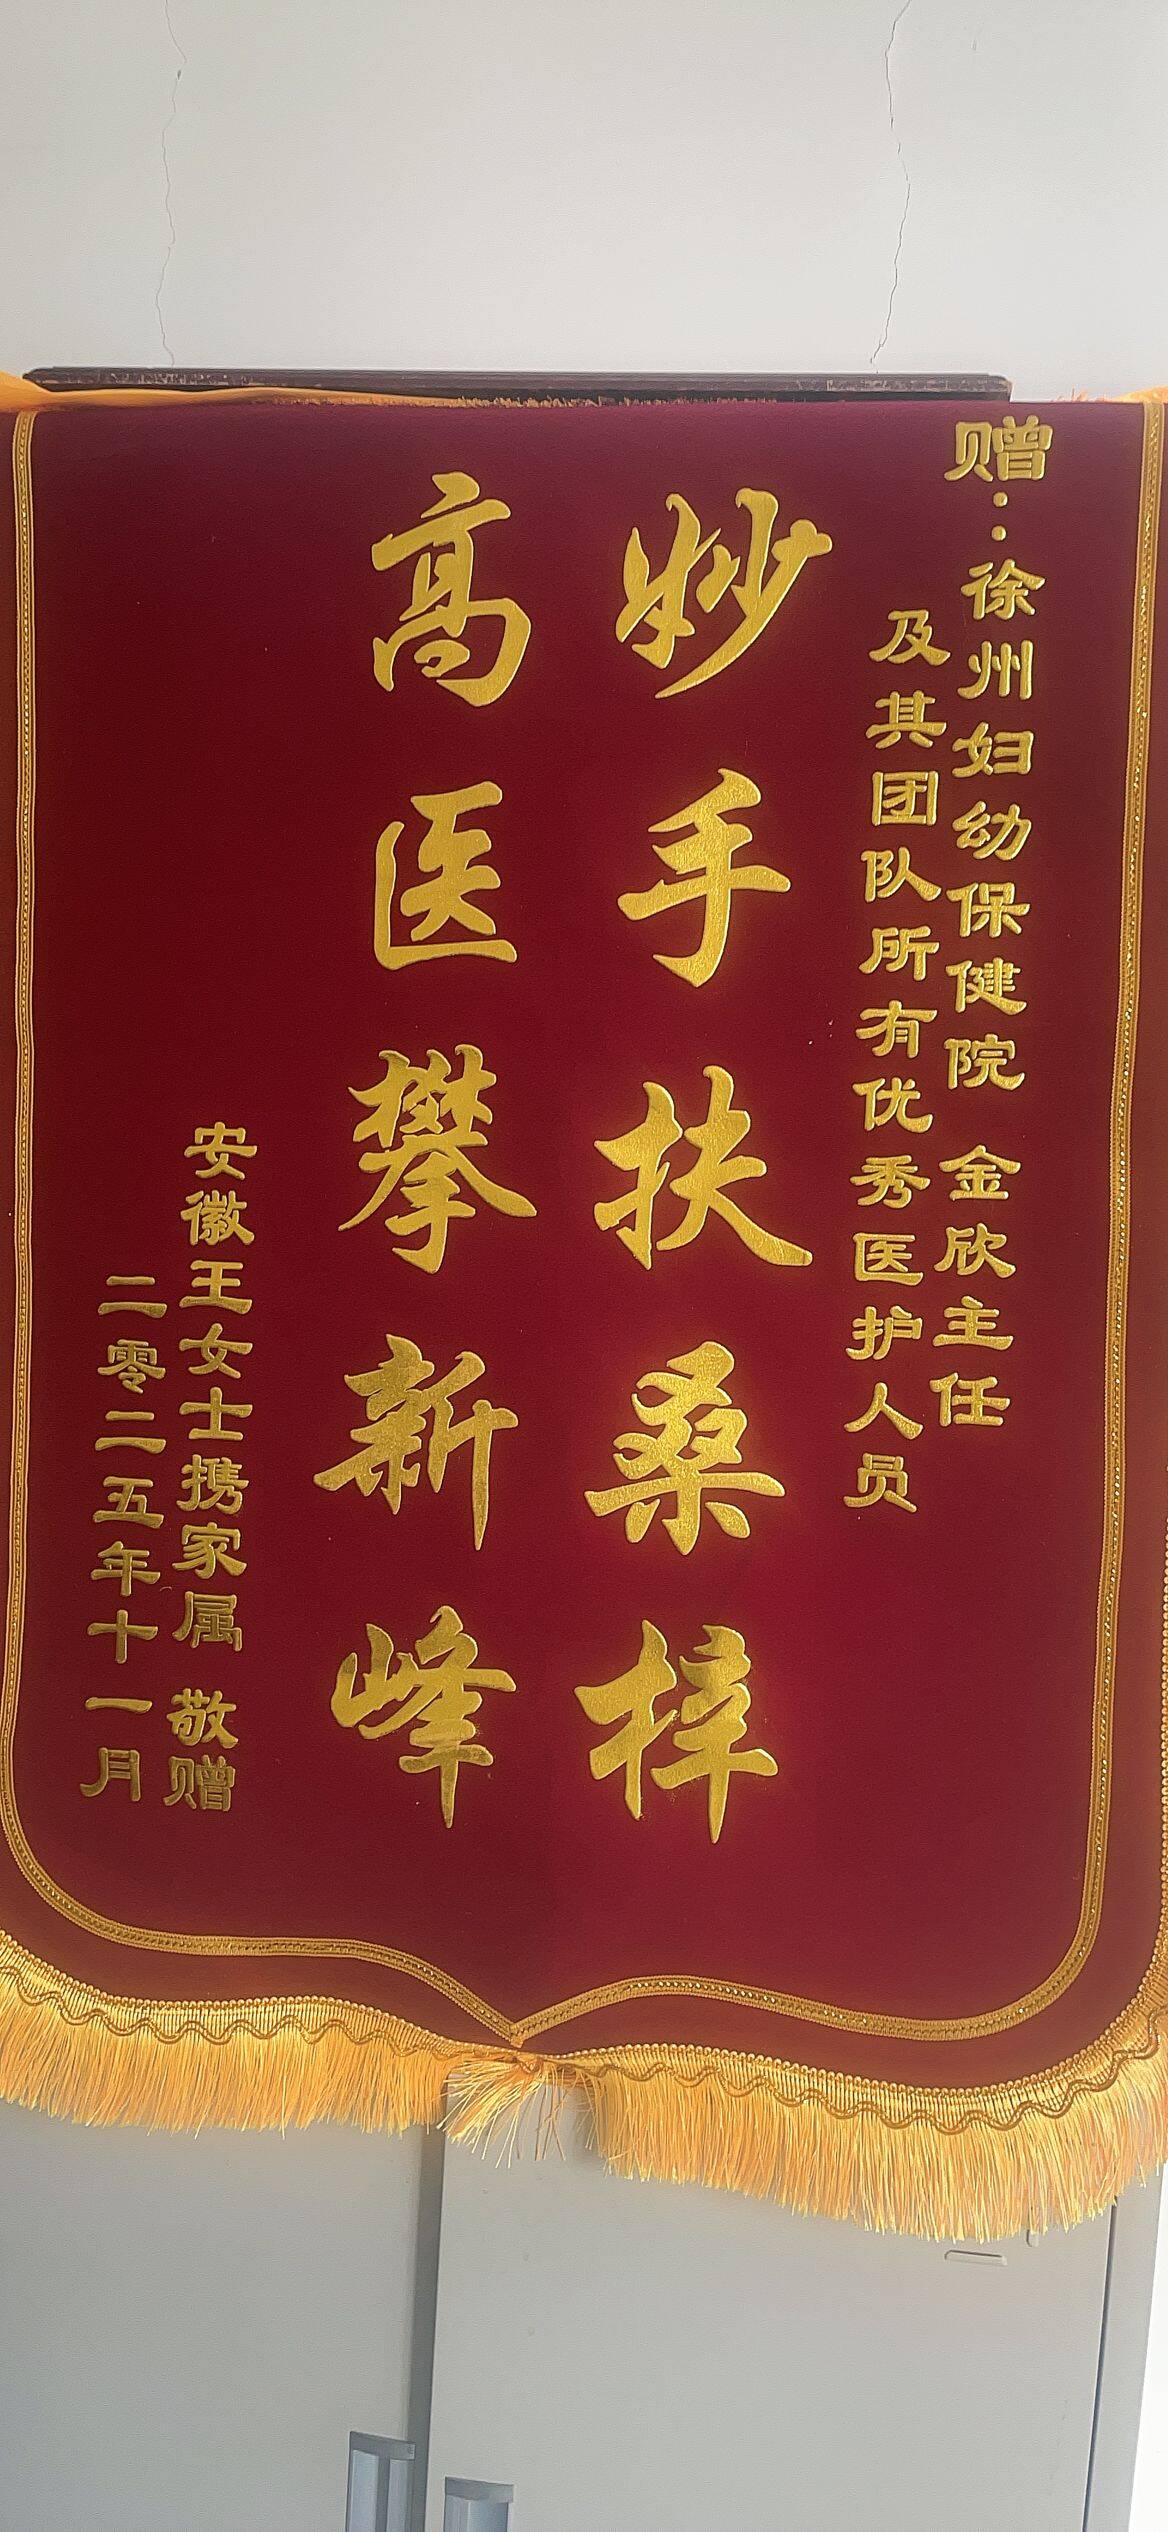 赠：徐州妇幼保健院 金欣主任
及其团队所有优秀医护人员
妙手扶桑梓
高医攀新峰
安徽王女士携家属 敬赠
二零二五年十一月